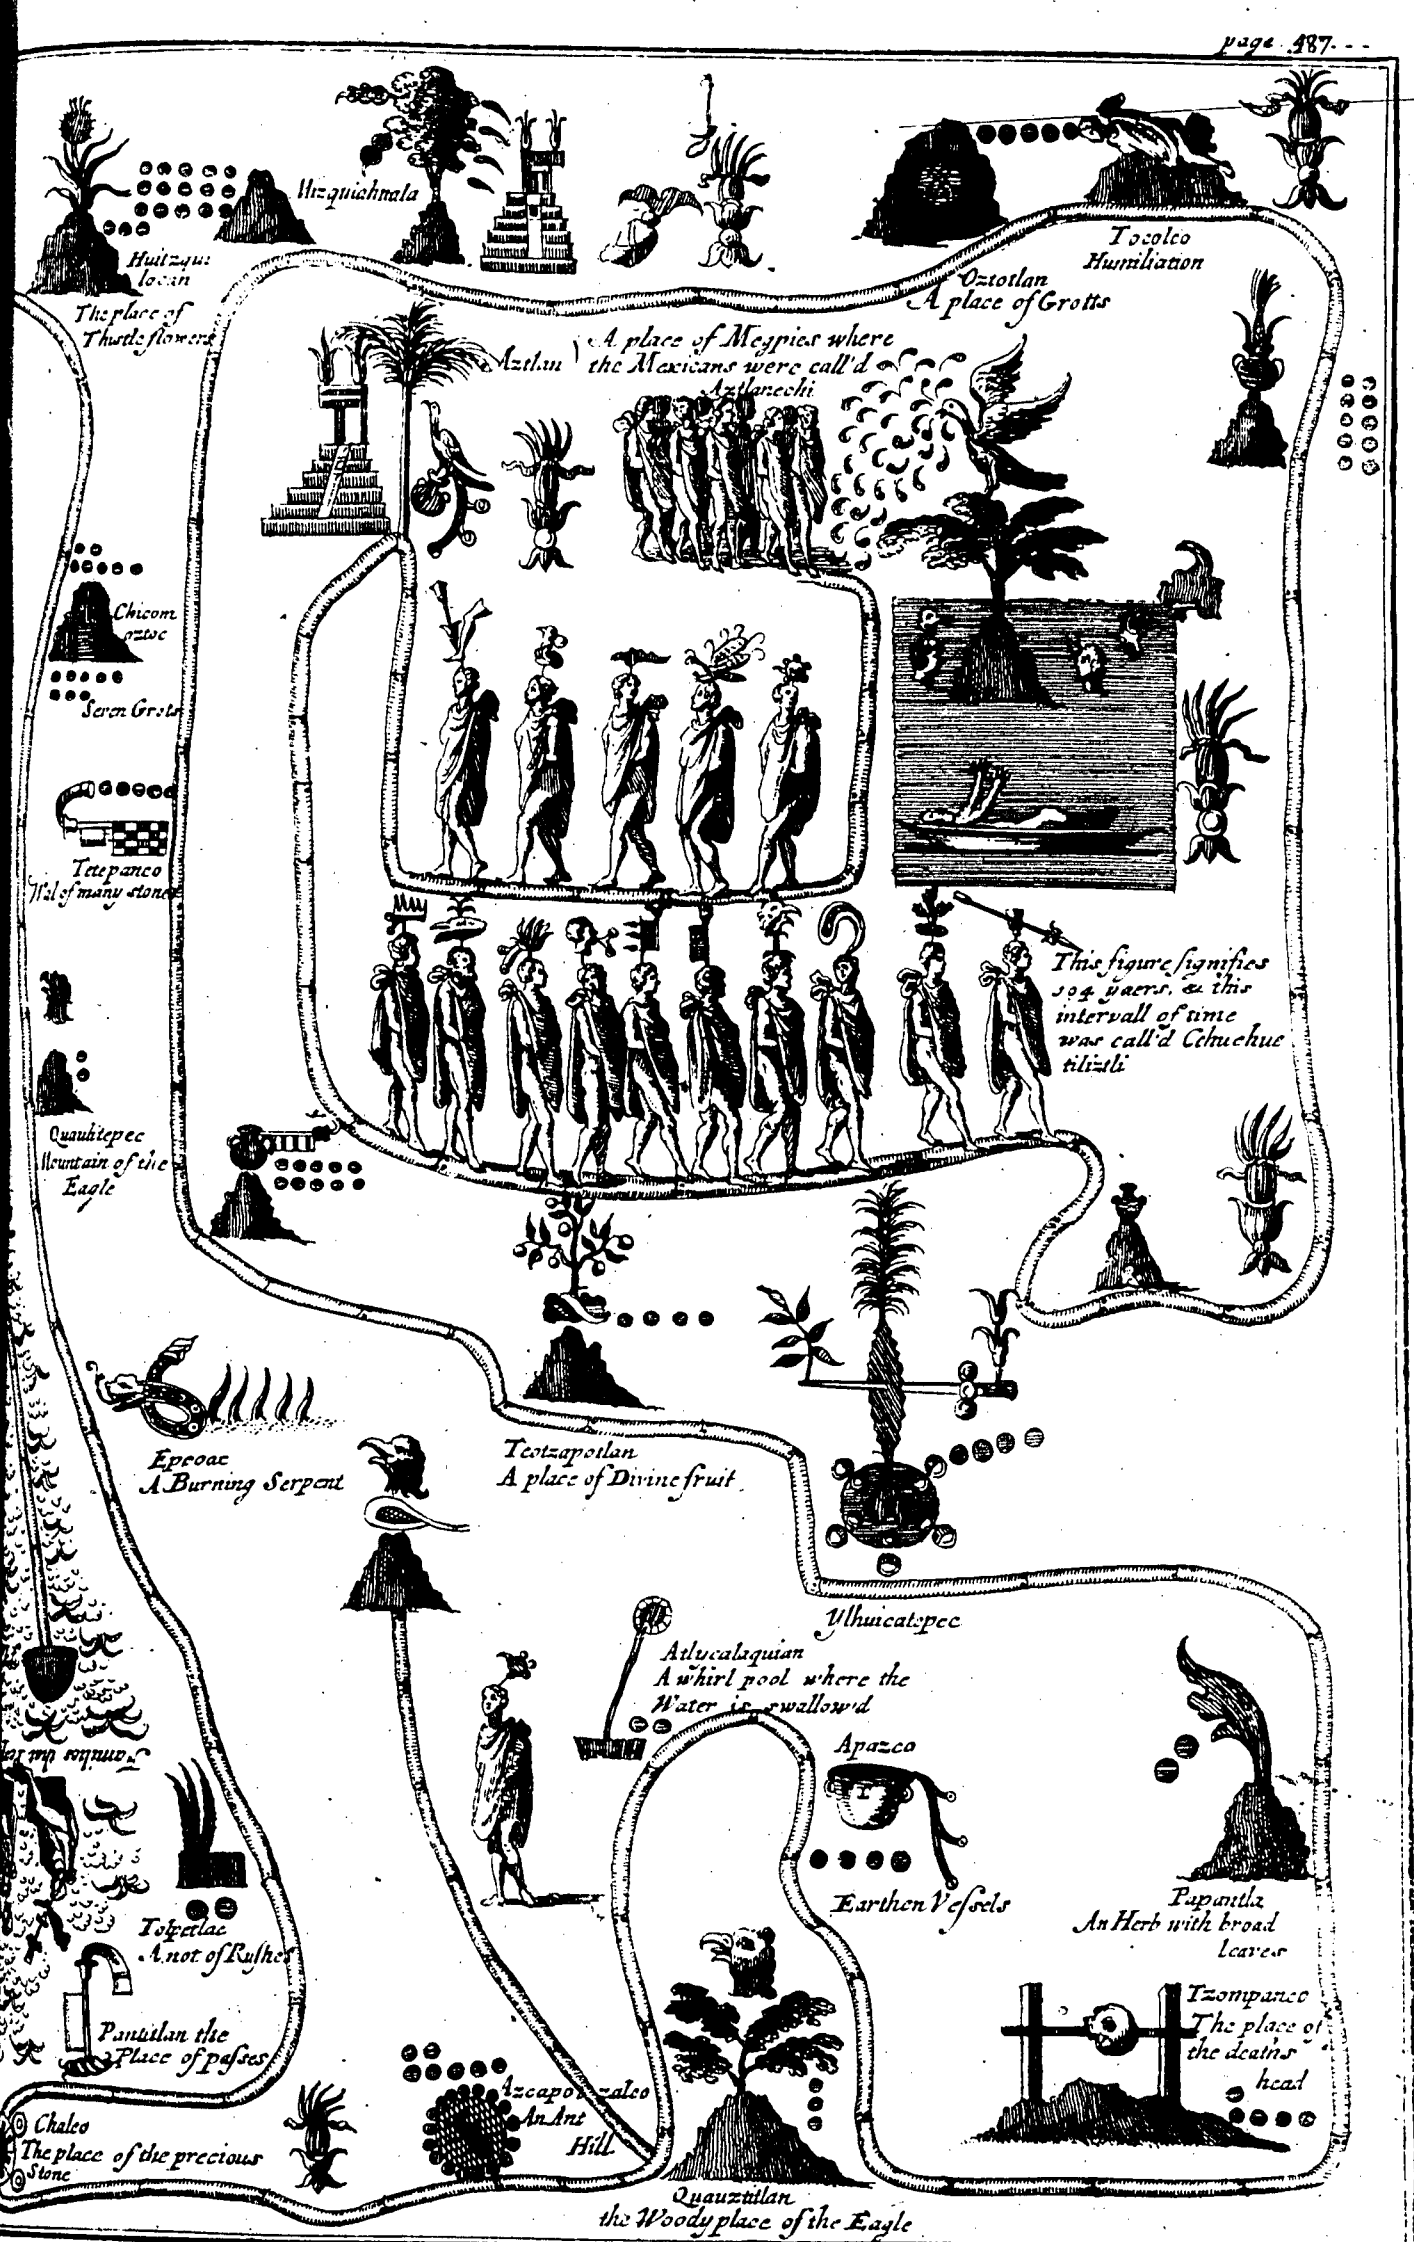 page 487
Mizquiahuala
Huitzqui
locan
The place of
Thistle flowers
Tocolco
Humiliation
Oztotlan
A place of Grotts
Aztlan
A place of Megpies where
the Mexicans were call'd
Aztlanechi
Chicom
oztoc
Seven Grots
Tetepanco
Wal of many stones
This figure signifies
104 yaers, & this
intervall of time
was call'd Cehuehue
tiliztli
Quauhtepec
Mountain of the
Eagle
Epcoac
A Burning Serpent
Teotzapotlan
A place of Divine fruit
Ylhuicatepec
Atlycalaquian
A whirl pool where the
Water is swallow'd
Apazco
Earthen Vessels
Papantla
An Herb with broad
leaves
Families that
Tolpetlac
A not of Rushes
Pantitlan the
Place of passes
Tzompanco
The place of
the deaths
head
Azcapotzalco
An Ant
Hill
Chalco
The place of the precious
Stone
Quauztitlan
the Woody place of the Eagle